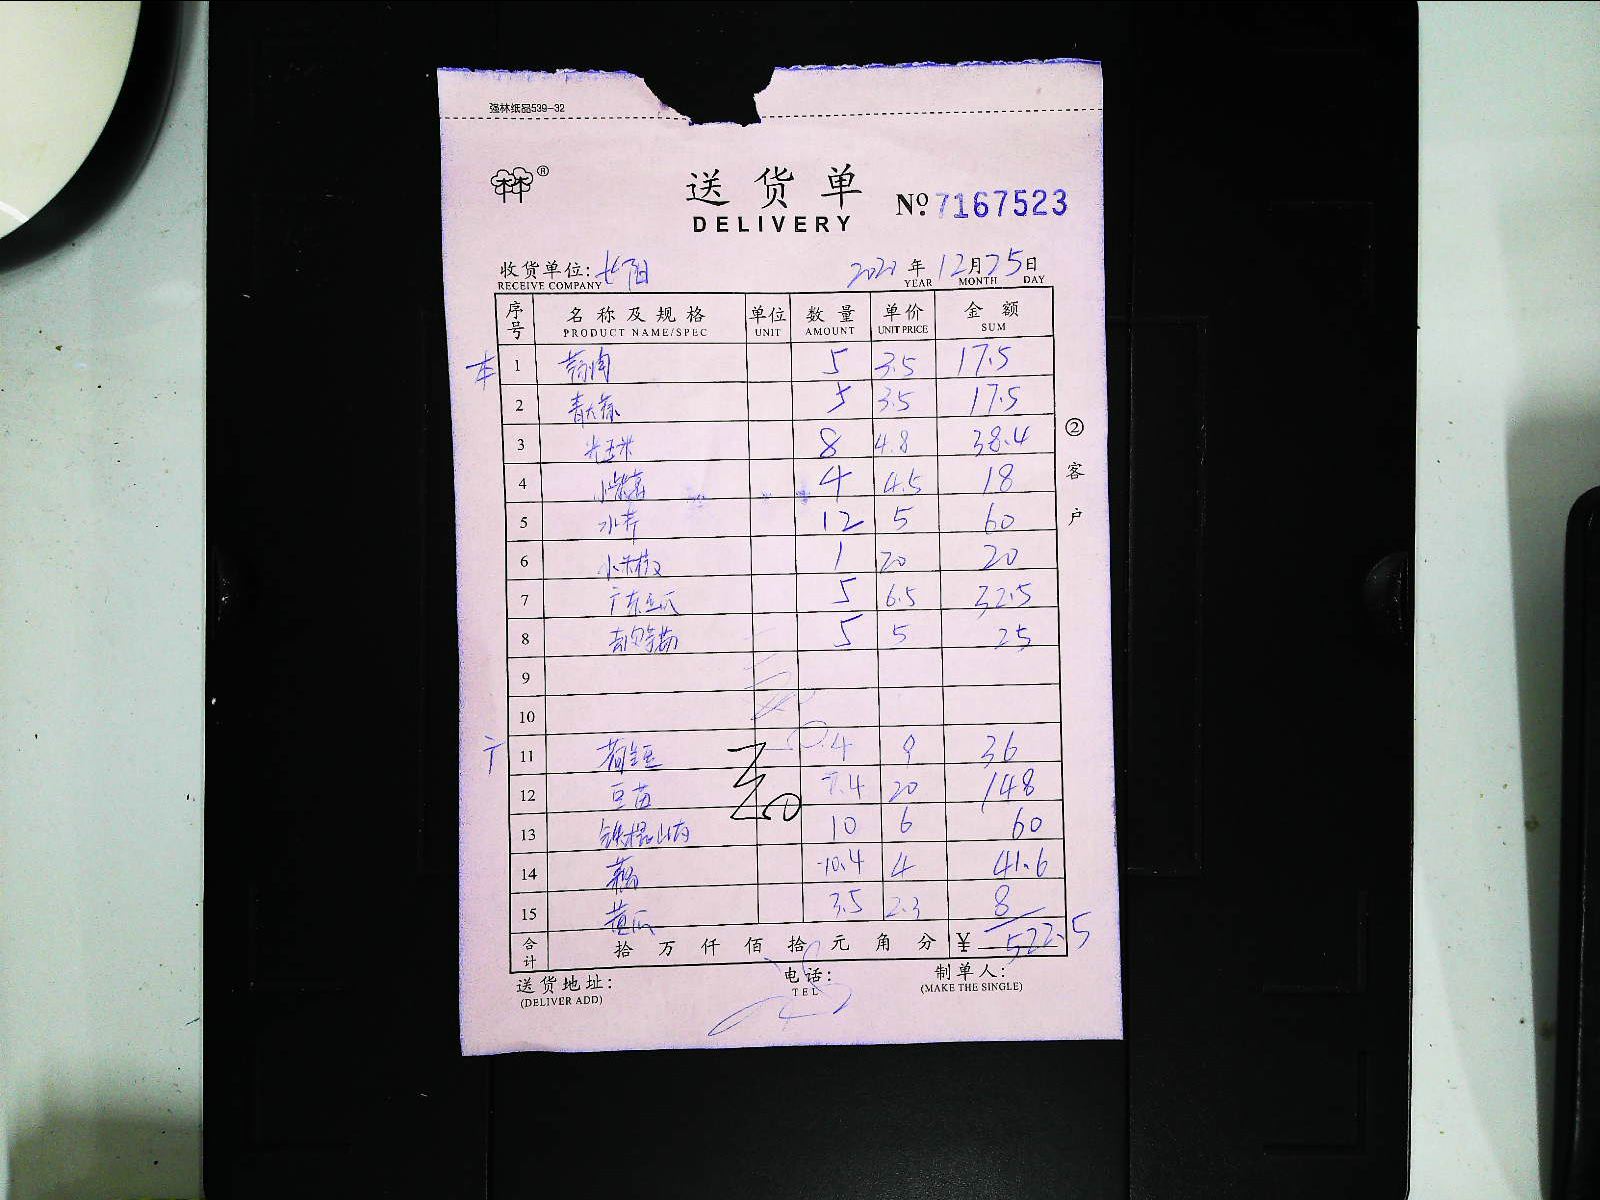 强林纸品539-32
送货单
DELIVERY
No. 7167523
收货单位: 长阳 年 12月25日
RECEIVE COMPANY YEAR MONTH DAY
序号 名称及规格 单位 数量 单价 金额
PRODUCT NAME/SPEC UNIT AMOUNT UNIT PRICE SUM
本 1 蒜肉 5 3.5 17.5
2 青大蒜 5 3.5 17.5
3 光玉米 8 4.8 38.4
4 4 4.5 18
5 水芹 12 5 60
6 小米椒 1 20 20
7 广东 5 6.5 32.5
8 5 5 25
9
10
11 荷兰豆 4 9 36
12 豆苗 7.4 20 148
13 铁棍山药 10 6 60
14 藕 10.4 4 41.6
15 黄瓜 3.5 2.3 8
合计 拾 万 仟 佰 拾 元 角 分 ¥ 522.5
送货地址: 电话: 制单人:
(DELIVER ADD) TEL (MAKE THE SINGLE)
②客户